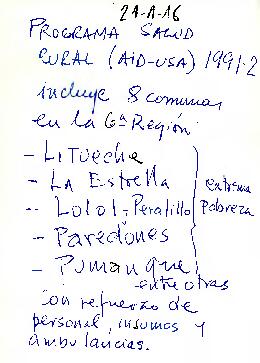 21-A-16
PROGRAMA SALUD
RURAL (AID-USA) 1991-2
incluye 8 comunas
en la 6ª Región
- LITUECHE
- LA ESTRELLA
- LOLOL, Peralillo
- PAREDONES
- PUMANQUE
extrema
Pobreza
entre otras
con refuerzo de
personal, insumos y
ambulancias.